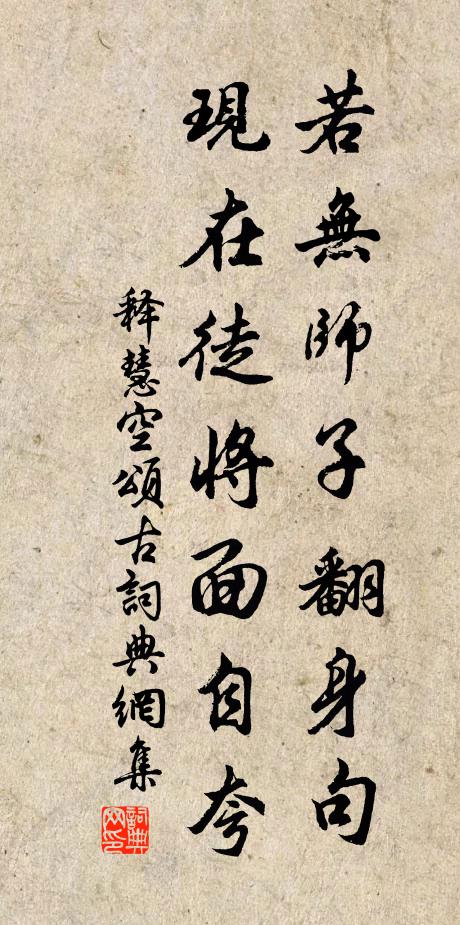 若無師子翻身句
現在徒將面自夸
释慧空頌古詞典網集
詞典
网印